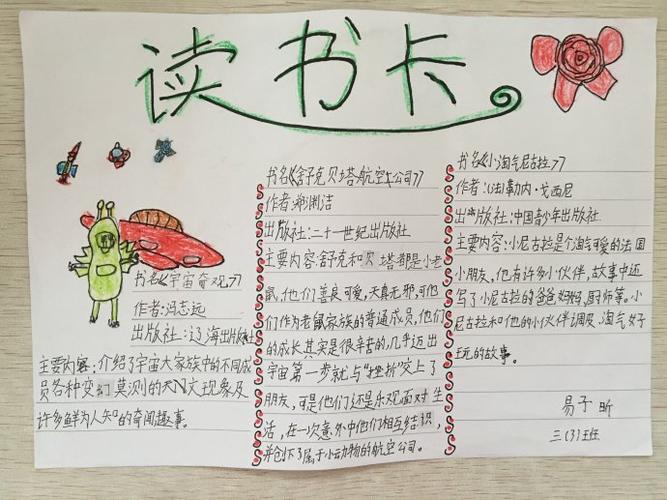 读书卡
书名《宇宙奇观》
作者:冯志远
出版社:辽海出版社
主要内容:介绍了宇宙大家族中的不同成
员各种变幻莫测的天文现象及
许多鲜为人知的奇闻趣事。
书名《舒克贝塔航空公司》
作者:郑渊洁
出版社:二十一世纪出版社
主要内容:舒克和贝塔都是小老
鼠,他们善良可爱,天真无邪,可他
们作为老鼠家族的普通成员,他们
的成长其实是很辛苦的,几乎迈出
宇宙第一步就与"挫折"交上了
朋友,可是他们还是乐观面对生
活,在一次意外中他们相互结识,
并创下了属于小动物的航空公司。
书名《小淘气尼古拉》
作者:(法)勒内·戈西尼
出版社:中国青少年出版社
主要内容:小尼古拉是个淘气可爱的法国
小朋友,他有许多小伙伴,故事中还
写了小尼古拉的爸爸妈妈,厨师等。小
尼古拉和他的小伙伴调皮、淘气、好
玩的故事。
易子昕
三(3)班